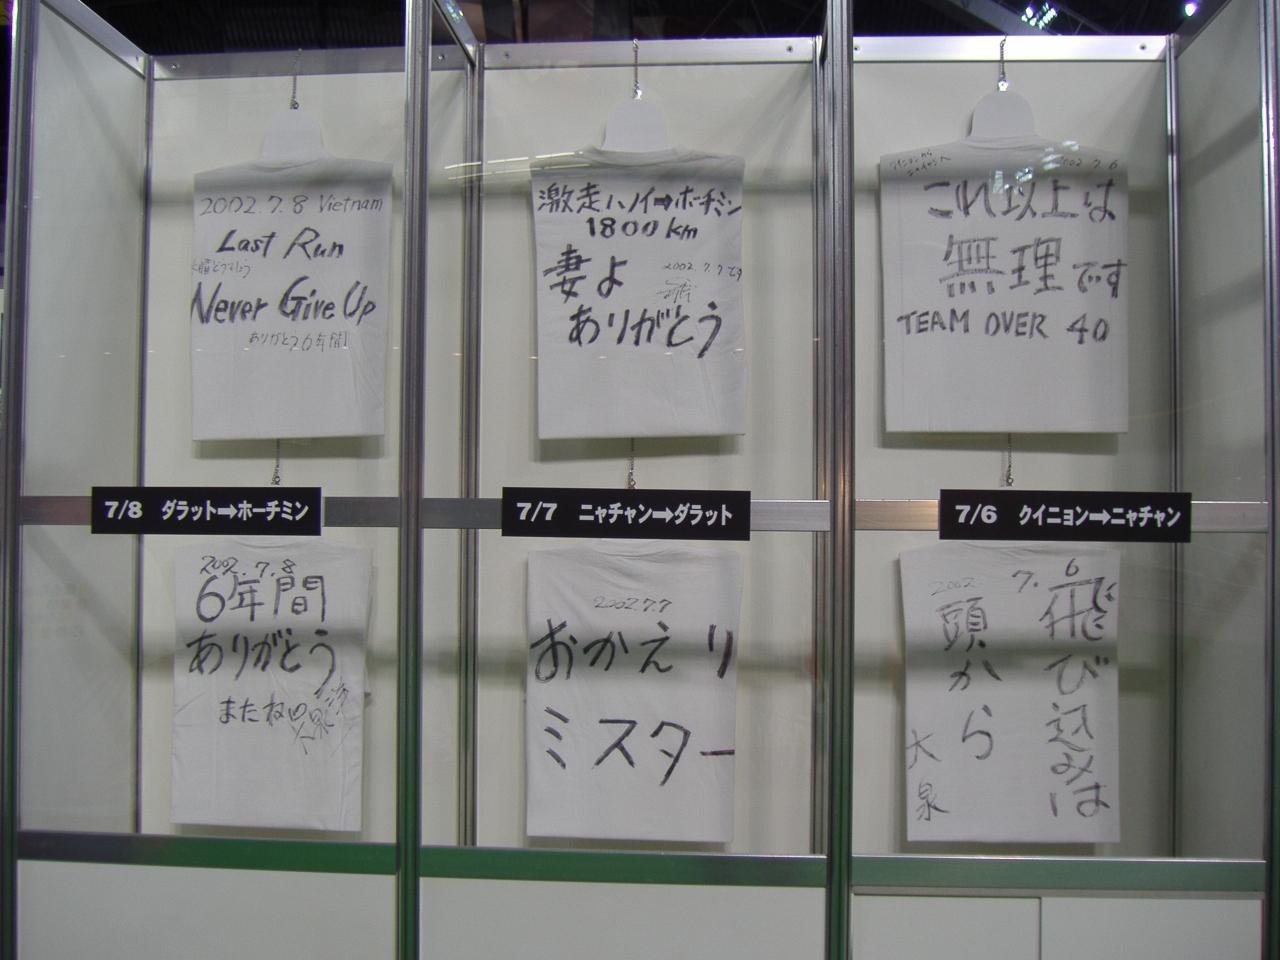 2002.7.8 Vietnam
Last Run
水曜どうでしょう
Never Give Up
ありがとう6年間
激走ハノイ➡ホーチミン
1800km
妻よ
2002.7.7です
ありがとう
クイニョンから
ニャチャンへ
2002.7.6
これ以上は
無理です
TEAM OVER 40
7/8 ダラット➡ホーチミン
7/7 ニャチャン➡ダラット
7/6 クイニョン➡ニャチャン
2002.7.8
6年間
ありがとう
またね
大泉洋
2002.7.7
おかえり
ミスター
2002. 7. 6
飛び込みは
頭から
大泉